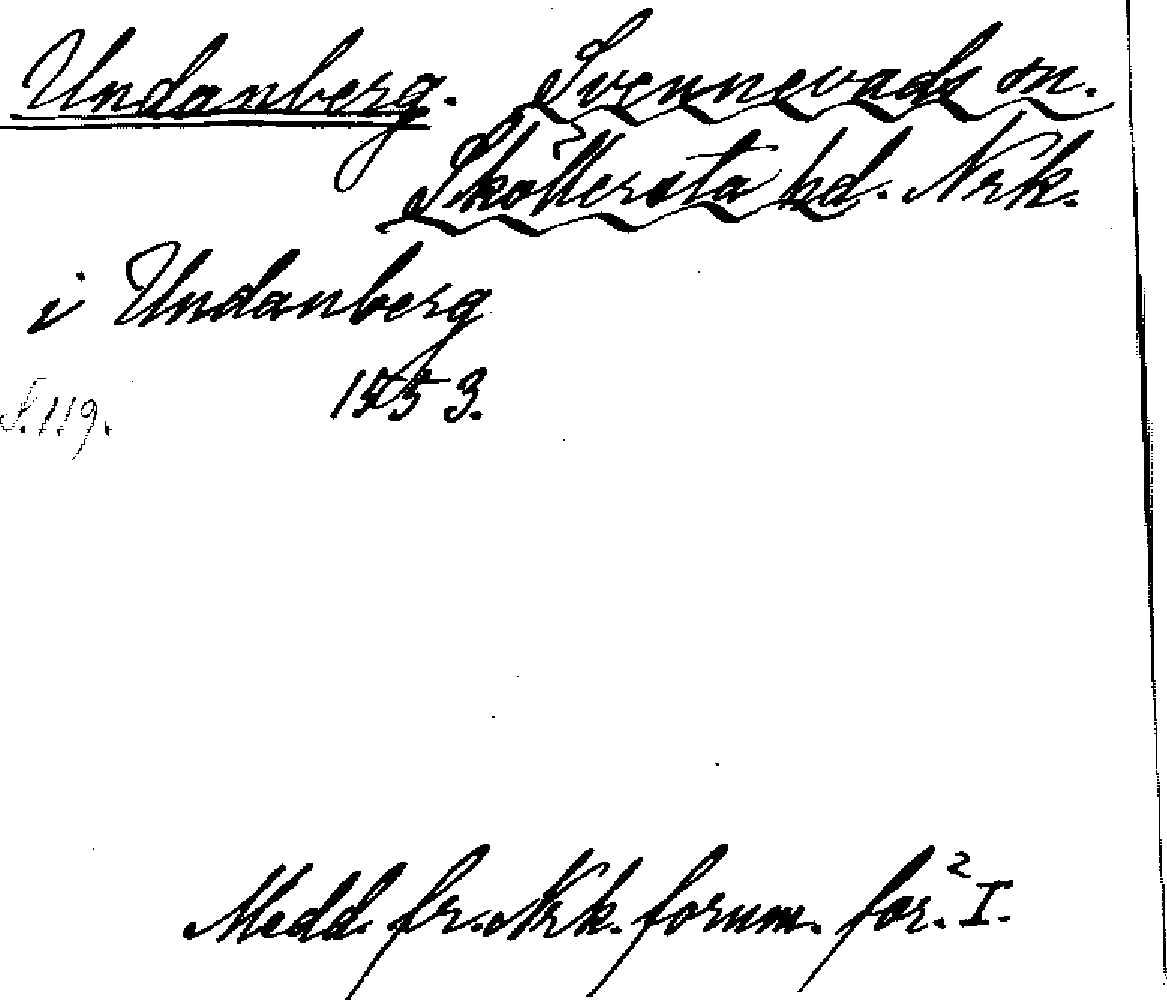 Undanberg. Svennevads sn.
Sköllersta hd. Nrk.
i Undanberg
1553.
S. 119.
Medd. fr. Nrk. fornm. för.² I.